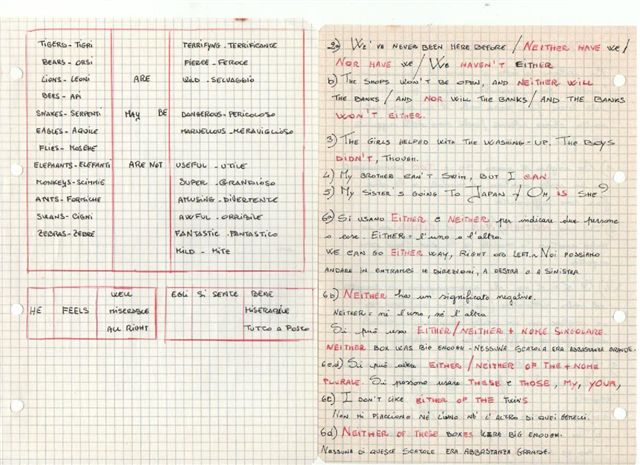 TIGERS - TIGRI TERRIFYNG - TERRIFICANTE
BEARS - ORSI FIERCE - FEROCE
LIONS - LEONI ARE WILD - SELVAGGIO
BEES - API
SNAKES - SERPENTI MAY BE DANGEROUS - PERICOLOSO
EAGLES - AQUILE MARVELLOUS - MERAVIGLIOSO
FLIES - MOSCHE
ELEPHANTS - ELEFANTI ARE NOT USEFUL - UTILE
MONKEYS - SCIMMIE SUPER - GRANDIOSO
ANTS - FORMICHE AMUSING - DIVERTENTE
SWANS - CIGNI AWFUL - ORRIBILE
ZEBRAS - ZEBRE FANTASTIC - FANTASTICO
MILD - MITE
HE FEELS WELL EGLI SI SENTE BENE
MISERABLE MISERABILE
ALL RIGHT TUTTO A POSTO
2a) WE'VE NEVER BEEN HERE BEFORE / NEITHER HAVE WE /
NOR HAVE WE / WE HAVEN'T EITHER
b) THE SHOPS WON'T BE OPEN, AND NEITHER WILL
THE BANKS / AND NOR WILL THE BANKS / AND THE BANKS
WON'T EITHER.
3) THE GIRLS HELPED WITH THE WASHING-UP. THE BOYS
DIDN'T, THOUGH.
4) MY BROTHER CAN'T SWIM, BUT I CAN
5) MY SISTER'S GOING TO JAPAN / OH, IS SHE?
6a) Si usano EITHER e NEITHER per indicare due persone
o cose. EITHER = l'uno o l'altro.
WE CAN GO EITHER WAY, RIGHT OR LEFT. NOI POSSIAMO
ANDARE IN ENTRAMBI LE DIREZIONI, A DESTRA O A SINISTRA
6b) NEITHER ha un significato negativo.
NEITHER = né l'uno, né l'altro
Si può usa EITHER / NEITHER + NOME SINGOLARE.
NEITHER BOX WAS BIG ENOUGH - NESSUNA SCATOLA ERA ABBASTANZA GRANDE.
Si può EITHER / NEITHER OF THE + NOME
PLURALE. Si possono usare THESE e THOSE, MY, YOUR,
6c) I DON'T LIKE EITHER OF THE TWINS
NON MI PIACCIONO NÉ L'UNO NÉ L'ALTRO DI QUEI GEMELLI.
6d) NEITHER OF THESE BOXES WERE BIG ENOUGH.
NESSUNA DI QUESTE SCATOLE ERA ABBASTANZA GRANDE.